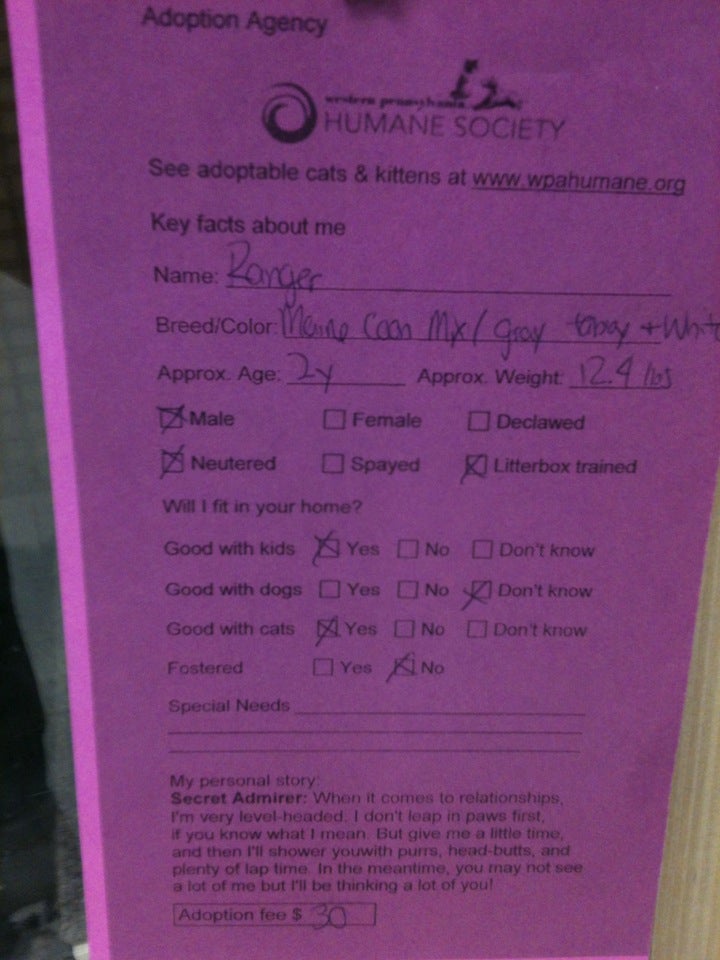 Adoption Agency
western pennsylvania
HUMANE SOCIETY
See adoptable cats & kittens at www.wpahumane.org
Key facts about me
Name: Ranger
Breed/Color: Maine Coon Mx/ gray tabby + White
Approx. Age: 2y Approx. Weight: 12.4 lbs
Male Female Declawed
Neutered Spayed Litterbox trained
Will I fit in your home?
Good with kids Yes No Don't know
Good with dogs Yes No Don't know
Good with cats Yes No Don't know
Fostered Yes No
Special Needs
My personal story:
Secret Admirer: When it comes to relationships,
I'm very level-headed; I don't leap in paws first,
if you know what I mean. But give me a little time,
and then I'll shower youwith purrs, head-butts, and
plenty of lap time. In the meantime, you may not see
a lot of me but I'll be thinking a lot of you!
Adoption fee $ 30